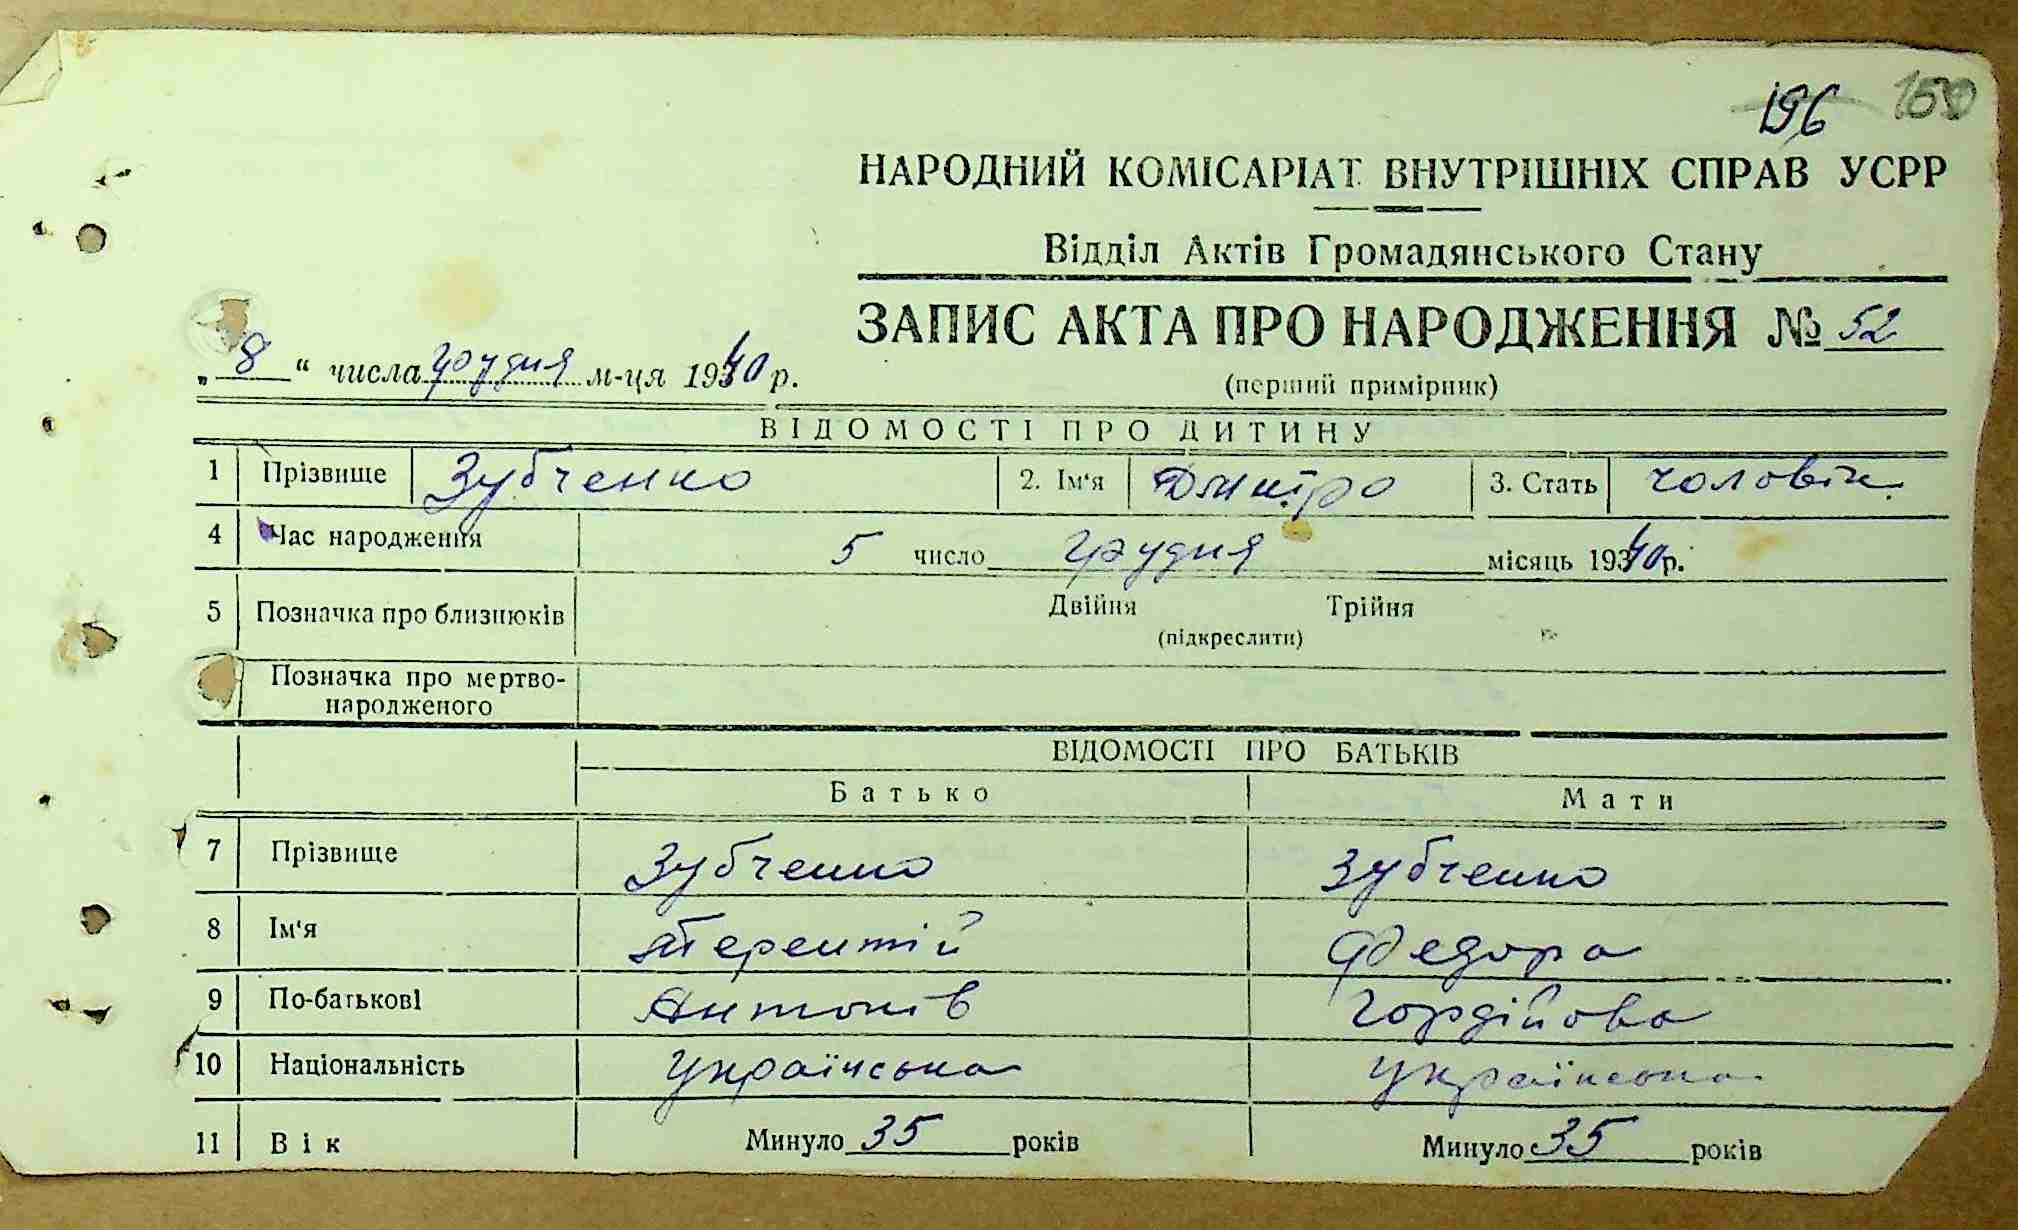 196 150
НАРОДНИЙ КОМІСАРІАТ ВНУТРІШНІХ СПРАВ УСРР
Відділ Актів Громадянського Стану
ЗАПИС АКТА ПРО НАРОДЖЕННЯ № 52
„ 8 “ числа грудня м-ця 1940 р.
(перший примірник)
ВІДОМОСТІ ПРО ДИТИНУ
1 Прізвище Зубченко 2. Ім'я Дмитро 3. Стать чоловіч.
4 Час народження 5 число грудня місяць 1940 р.
5 Позначка про близнюків Двійня Трійня
(підкреслити)
Позначка про мертво-
народженого
ВІДОМОСТІ ПРО БАТЬКІВ
Батько Мати
7 Прізвище Зубченко Зубченко
8 Ім'я Терентій Федора
9 По-батькові Антонів Гордійова
10 Національність українська українська
11 Вік Минуло 35 років Минуло 35 років